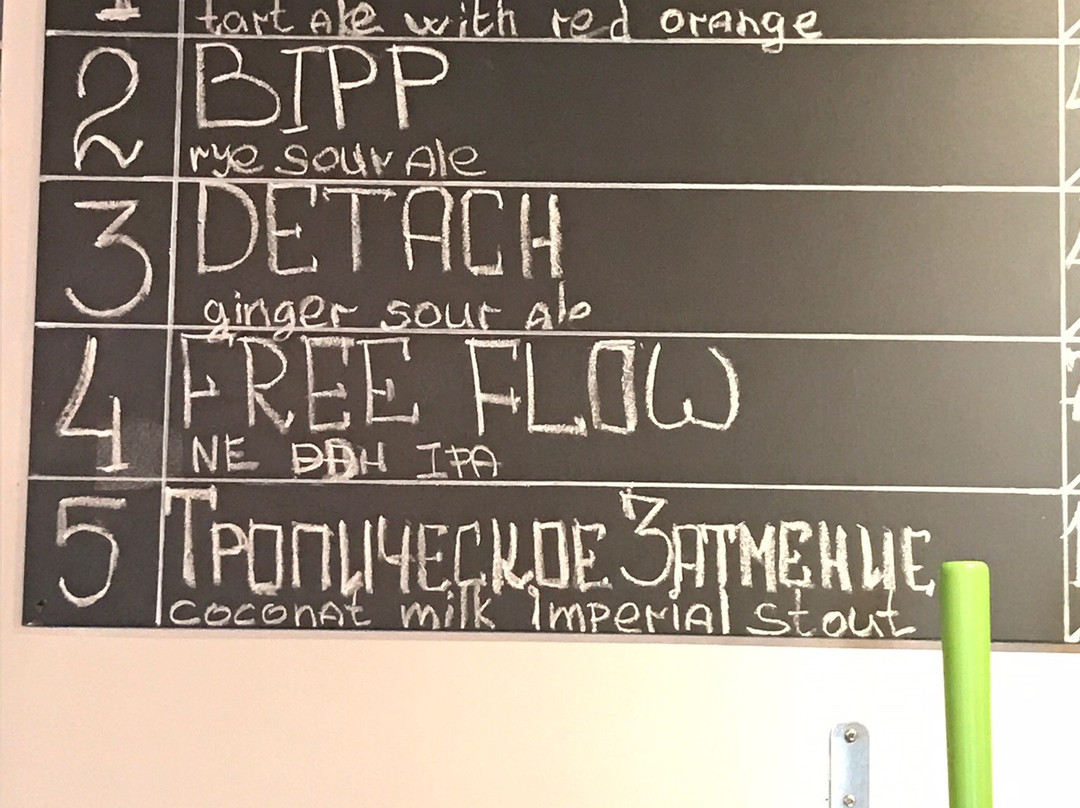 tart Ale with red orange
2 BIPP
rye sour Ale
3 DETACH
ginger sour ale
4 FREE FLOW
NE DDH IPA
5 Тропическое Затмение
coconat milk Imperial stout